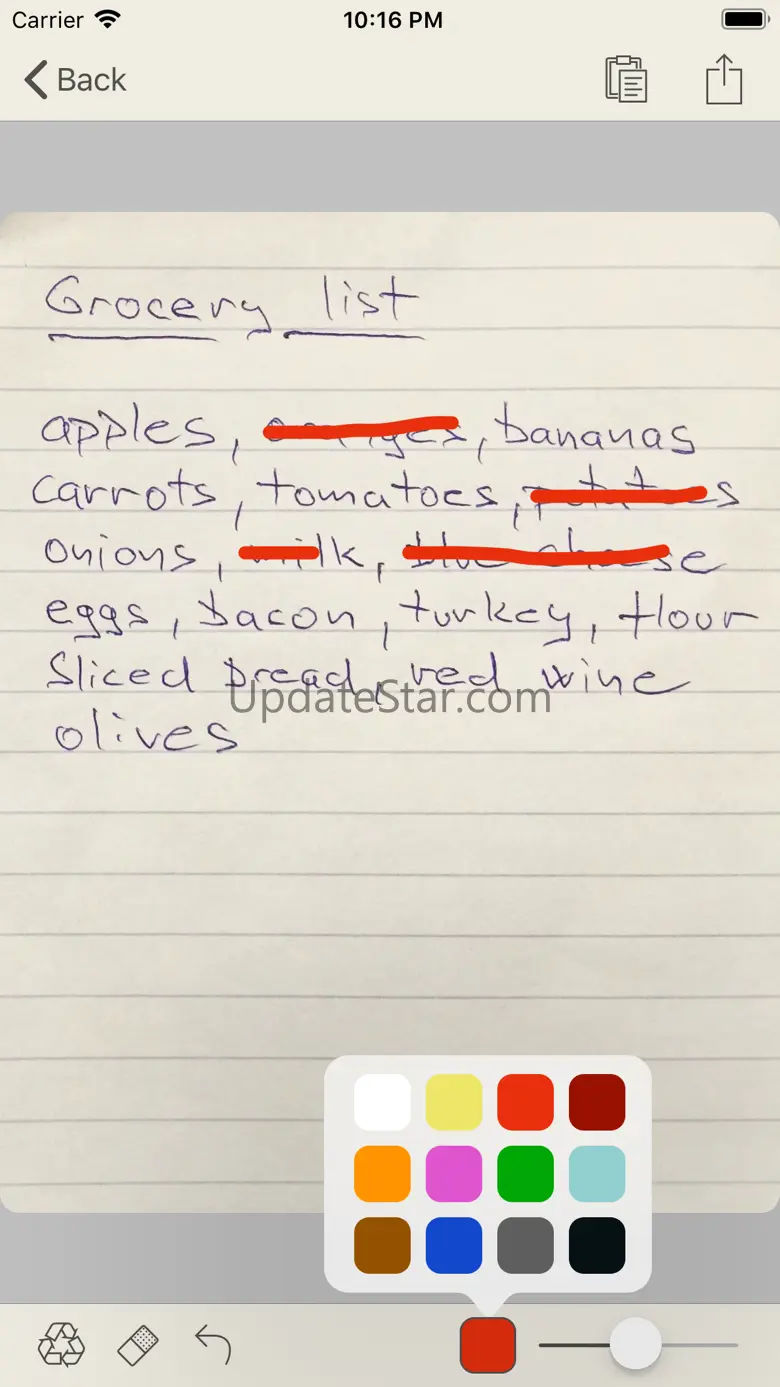 Carrier 10:16 PM
Back
Grocery list
apples, oranges, bananas
carrots, tomatoes, potatoes
onions, milk, blue cheese
eggs, bacon, turkey, flour
Sliced bread, red wine
UpdateStar.com
olives